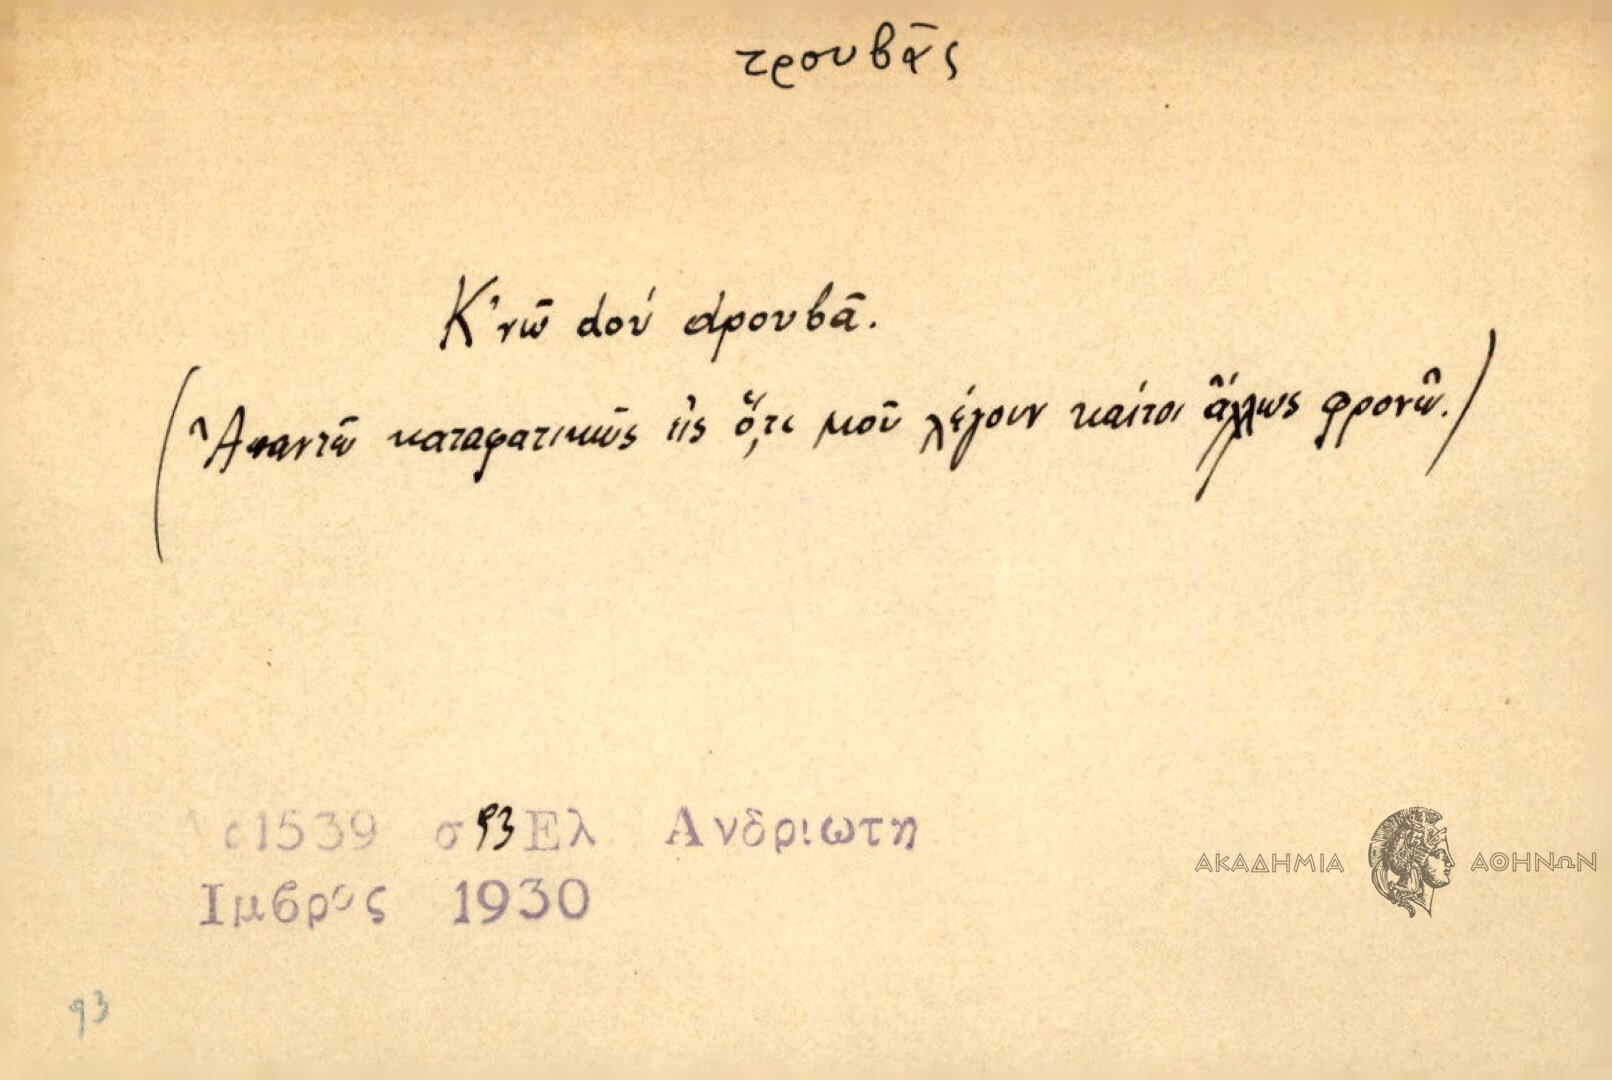 τρουβᾶς
Κ'νῶ dοὺ dρουβᾶ.
(Ἀπαντῶ καταφατικῶς εἰς ὅ,τι μοῦ λέγουν καίτοι ἄλλως φρονῶ.)
1539 σ 93 Ελ Ανδριωτη
Ιμβρος 1930
ΑΚΑΔΗΜΙΑ ΑΘΗΝΩΝ
93